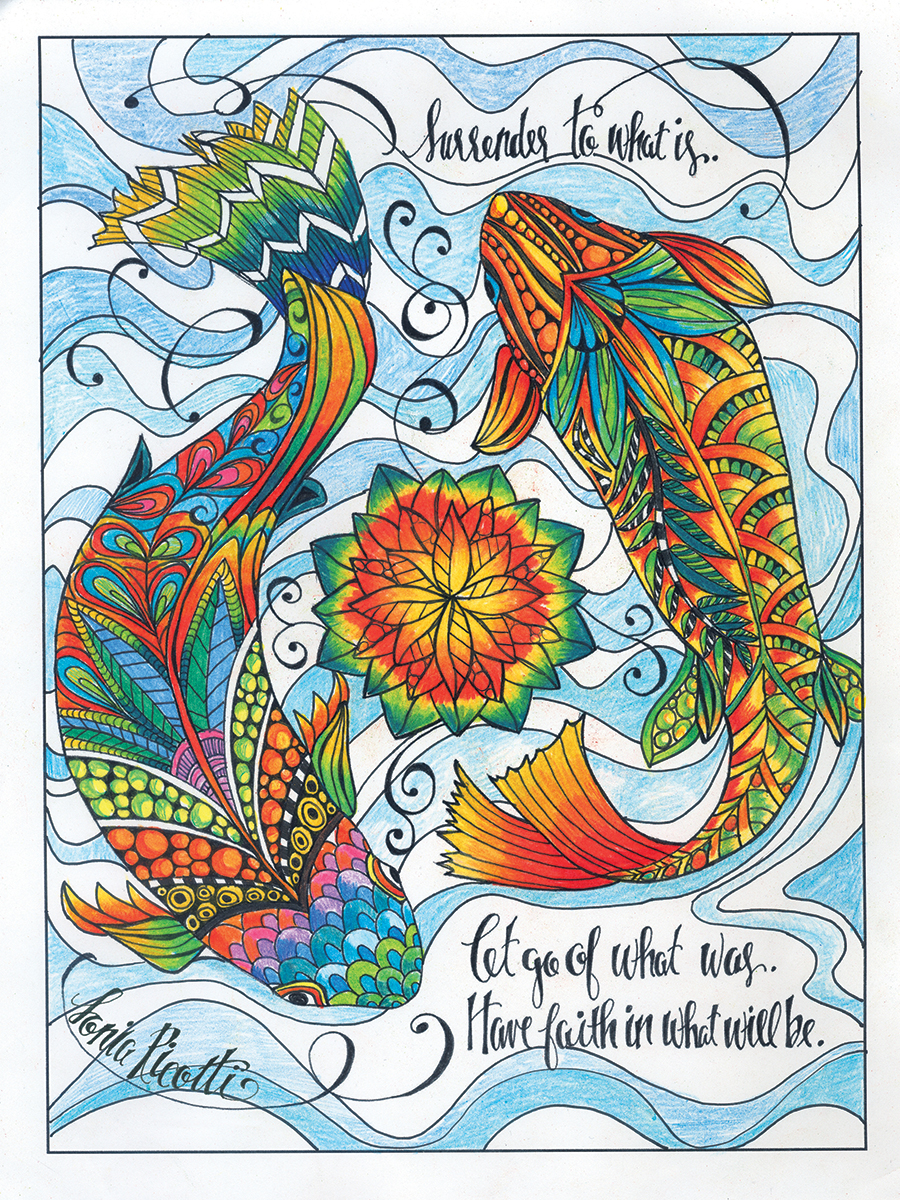 Surrender to what is.
Let go of what was.
Have faith in what will be.
Sonia Picotti